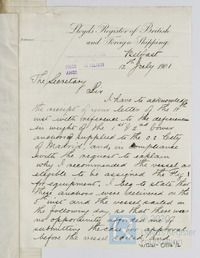 Lloyd's Register of British
and Foreign Shipping.
Belfast
12th July 1901
The Secretary
Sir
I have to acknowledge
the receipt of your letter of the 11th
inst with reference to the deficiency
in weight of the 1st & 2nd Bower
anchors supplied to the SS City
of Madrid, and, in compliance
with the request to explain
why I recommended the vessel as
eligible to be assigned the Fig 1
for equipment, I beg to state that
these anchors were delivered on the
5th inst and the vessel sailed on
the following day so that there was
no opportunity afforded me of
submitting the case for approval
before the vessel sailed, and